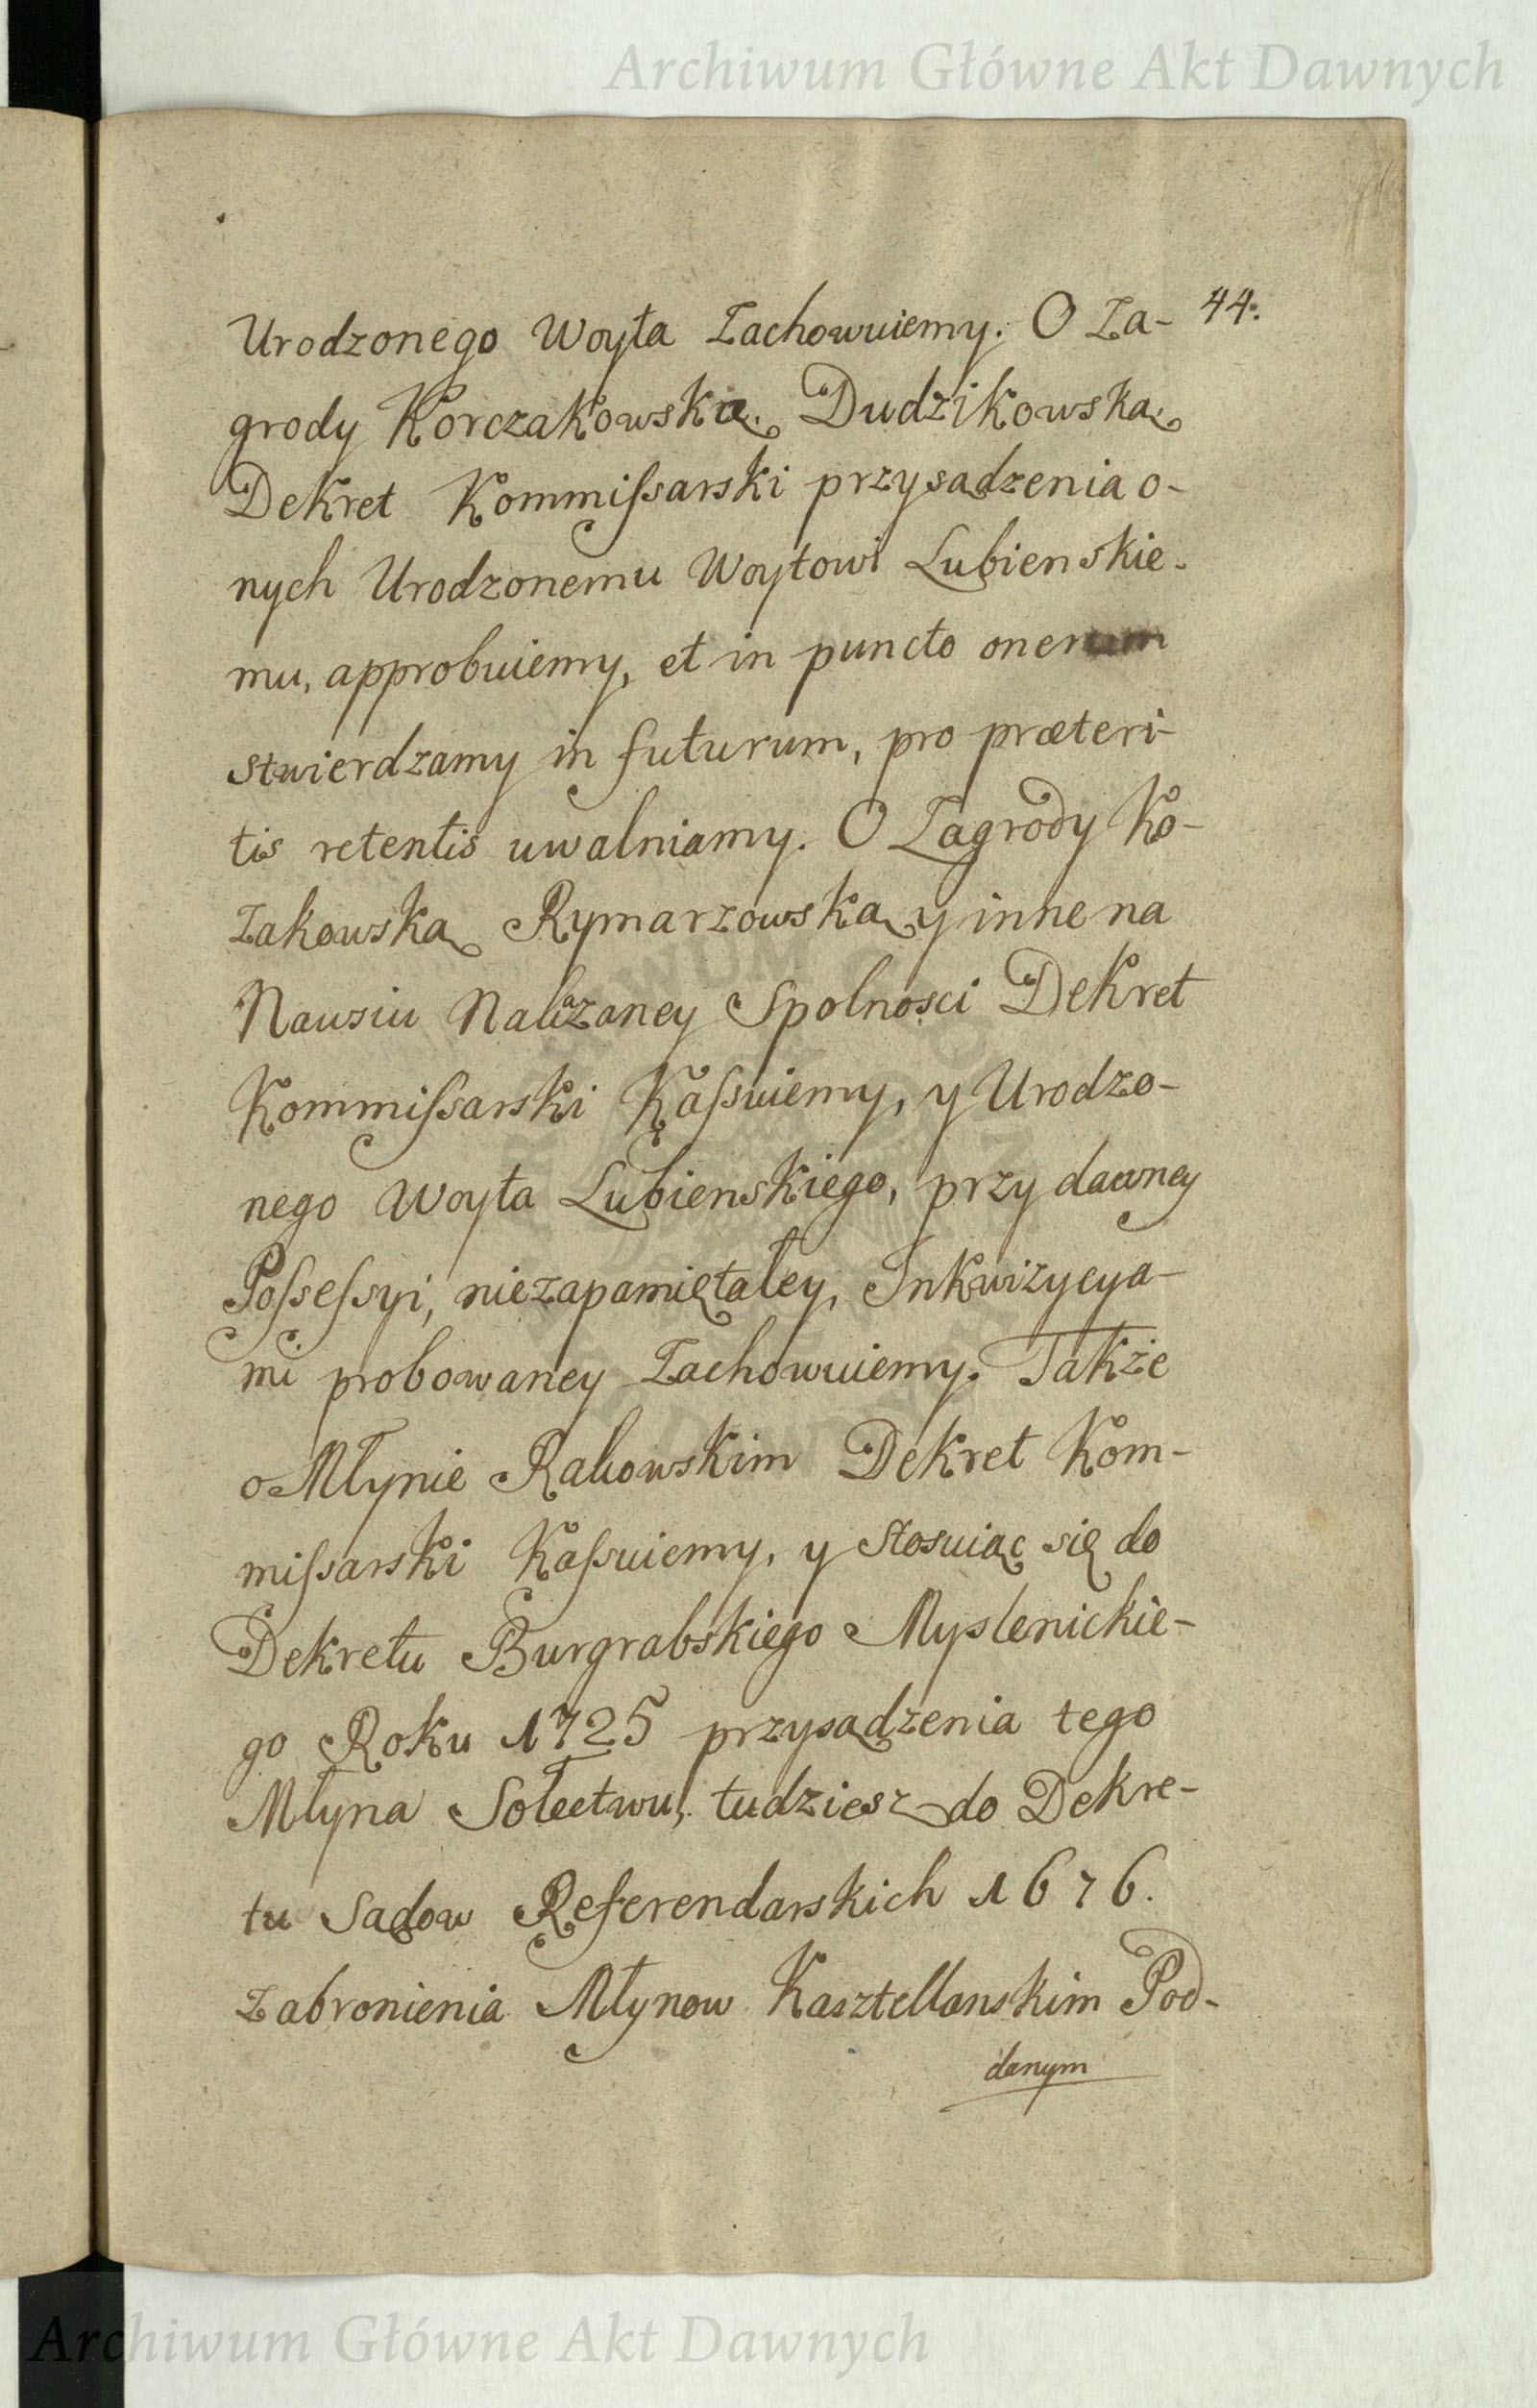 Archiwum Główne Akt Dawnych
44.
Urodzonego Woyta Zachowuiemy. O Za-
grody Korczakowską. Dudzikowską
Dekret Kommissarski przysądzenia o-
nych Urodzonemu Woytowi Lubienskie-
mu, approbuiemy, et in puncto onerum
stwierdzamy in futurum, pro præteri-
tis retentis uwalniamy. O Zagrody Ko-
zakowską Rymarzowską y inne na
Nausiu Nalazaney Spolnosci Dekret
Kommissarski Kassuiemy, y Urodzo-
nego Woyta Lubienskiego, przy dawney
Possessyi, niezapamiętałey, Inkwizycya-
mi probowaney Zachowuiemy. Takze
o Młynie Rakowskim Dekret Kom-
missarski Kassuiemy, y stosuiąc się do
Dekretu Burgrabskiego Myslenickie-
go Roku 1725 przysądzenia tego
Młyna Sołectwu, tudziesz do Dekre-
tu Sądow Referendarskich 1676.
Zabronienia Młynow Kasztellanskim Pod-
danym
Archiwum Główne Akt Dawnych